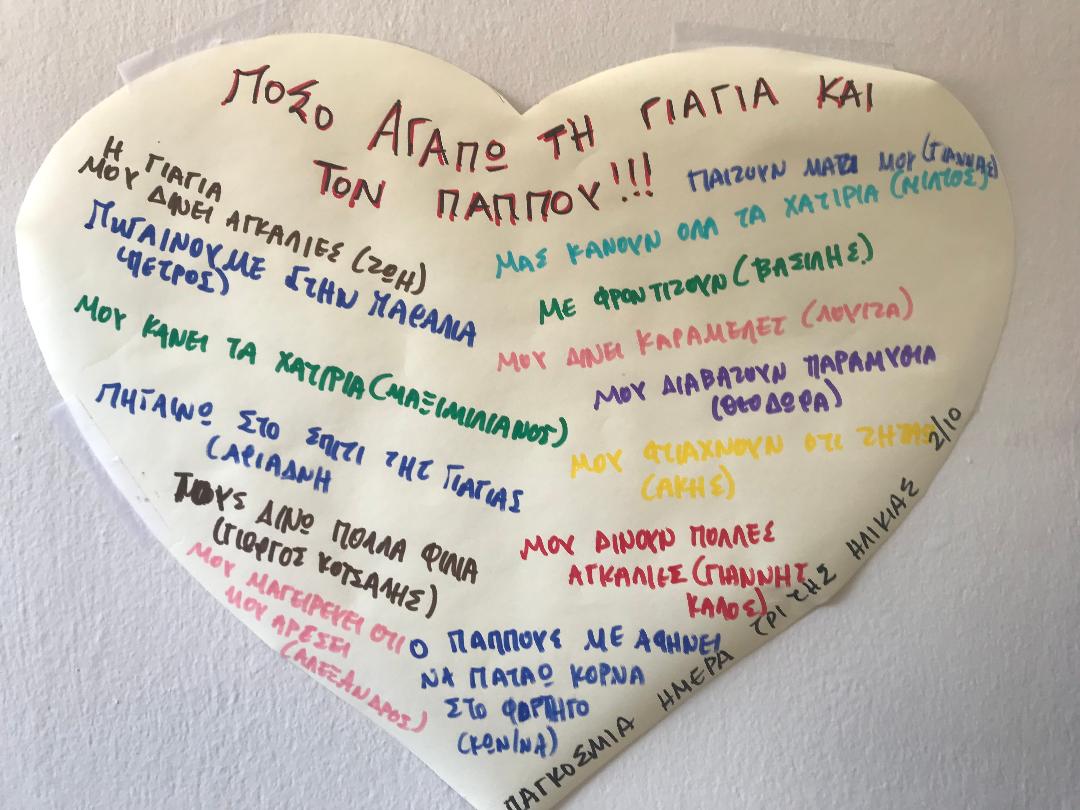 ΠΟΣΟ ΑΓΑΠΩ ΤΗ ΓΙΑΓΙΑ ΚΑΙ
ΤΟΝ ΠΑΠΠΟΥ!!!
Η ΓΙΑΓΙΑ
ΜΟΥ ΔΙΝΕΙ ΑΓΚΑΛΙΕΣ (ΖΩΗ)
ΠΗΓΑΙΝΟΥΜΕ ΣΤΗΝ ΠΑΡΑΛΙΑ
(ΠΕΤΡΟΣ)
ΜΟΥ ΚΑΝΕΙ ΤΑ ΧΑΤΙΡΙΑ (ΜΑΞΙΜΙΛΙΑΝΟΣ)
ΠΗΓΑΙΝΩ ΣΤΟ ΣΠΙΤΙ ΤΗΣ ΓΙΑΓΙΑΣ
(ΑΡΙΑΔΝΗ
ΤΟΥΣ ΔΙΝΩ ΠΟΛΛΑ ΦΙΛΙΑ
(ΓΙΩΡΓΟΣ ΚΟΤΣΑΛΗΣ)
ΜΟΥ ΜΑΓΕΙΡΕΥΕΙ ΟΤΙ
ΜΟΥ ΑΡΕΣΕΙ
(ΑΛΕΞΑΝΔΡΟΣ)
ΠΑΙΖΟΥΝ ΜΑΖΙ ΜΟΥ (ΓΙΑΝΝΑΣ)
ΜΑΣ ΚΑΝΟΥΝ ΟΛΑ ΤΑ ΧΑΤΙΡΙΑ (ΜΙΛΤΟΣ)
ΜΕ ΦΡΟΝΤΙΖΟΥΝ (ΒΑΣΙΛΗΣ)
ΜΟΥ ΔΙΝΕΙ ΚΑΡΑΜΕΛΕΣ (ΛΟΥΙΖΑ)
ΜΟΥ ΔΙΑΒΑΖΟΥΝ ΠΑΡΑΜΥΘΙΑ
(ΘΕΟΔΩΡΑ)
ΜΟΥ ΦΤΙΑΧΝΟΥΝ ΟΤΙ ΖΗΤΑΩ
(ΑΚΗΣ)
ΜΟΥ ΔΙΝΟΥΝ ΠΟΛΛΕΣ
ΑΓΚΑΛΙΕΣ (ΓΙΑΝΝΗΣ
ΚΑΛΟΣ)
Ο ΠΑΠΠΟΥΣ ΜΕ ΑΦΗΝΕΙ
ΝΑ ΠΑΤΑΩ ΚΟΡΝΑ
ΣΤΟ ΦΟΡΤΗΓΟ
(ΚΩΝ/ΝΑ)
ΠΑΓΚΟΣΜΙΑ ΗΜΕΡΑ ΤΡΙΤΗΣ ΗΛΙΚΙΑΣ 2/10